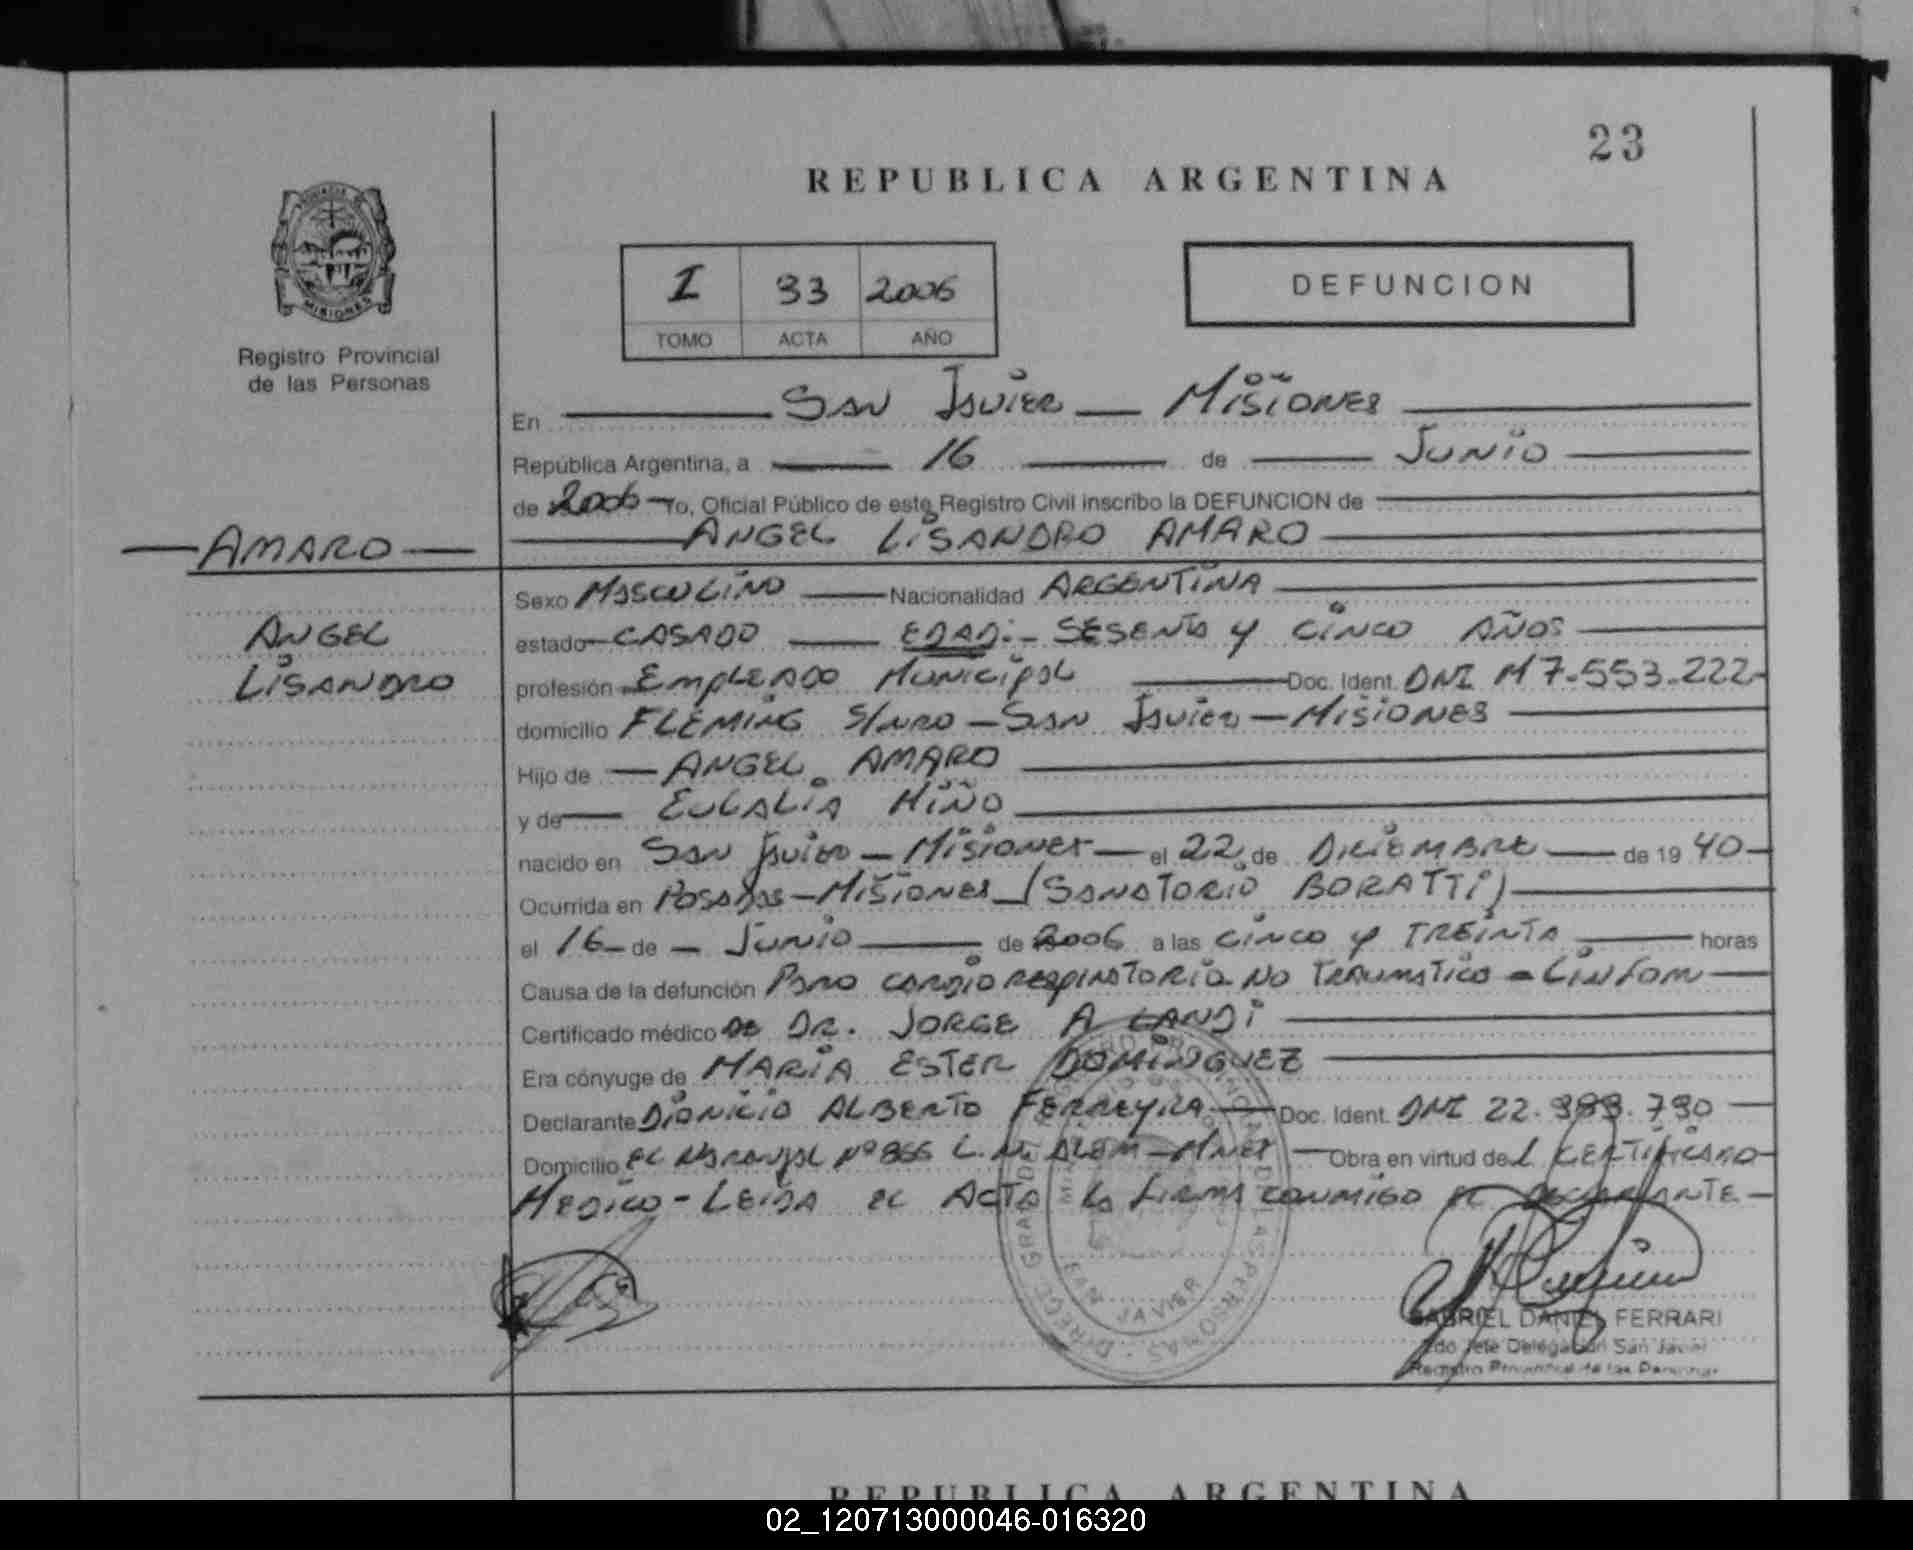 23
REPUBLICA ARGENTINA
MISIONES
Registro Provincial
de las Personas
I 33 2006
TOMO ACTA AÑO
DEFUNCION
En SAN JAVIER — MISIONES
República Argentina, a 16 de JUNIO
de 2006 Yo, Oficial Público de este Registro Civil inscribo la DEFUNCION de
ANGEL LISANDRO AMARO
AMARO
ANGEL
LISANDRO
Sexo MASCULINO Nacionalidad ARGENTINA
estado CASADO EDAD:- SESENTA y CINCO AÑOS
profesión EMPLEADO MUNICIPAL Doc. Ident. DNI M 7.553.222-
domicilio FLEMING S/NRO - SAN JAVIER - MISIONES
Hijo de ANGEL AMARO
y de EULALIA MIÑO
nacido en SAN JAVIER - MISIONES el 22 de DICIEMBRE de 19 40
Ocurrida en POSADAS - MISIONES - (SANATORIO BORATTI)
el 16 de JUNIO de 2006 a las CINCO y TREINTA horas
Causa de la defunción PARO CARDIO RESPIRATORIO NO TRAUMATICO - LINFOM
Certificado médico DE DR. JORGE A LANDI
Era cónyuge de MARIA ESTER DOMINGUEZ
Declarante DIONICIO ALBERTO FERREYRA Doc. Ident. DNI 22. 790
Domicilio EL NARANJAL Nº 866 L. N. ALEM - MNES Obra en virtud de L CERTIFICADO
MEDICO - LEIDA EL ACTA LA FIRMA CONMIGO EL DECLARANTE
SAN JAVIER
GABRIEL DANIEL FERRARI
Jefe Delegación San Javier
Registro Provincial de las Personas
REPUBLICA ARGENTINA
02_120713000046-016320